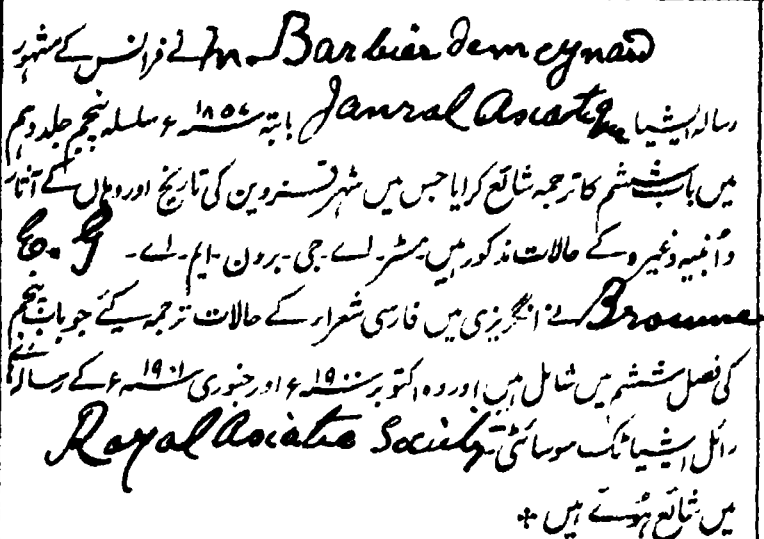 M. Barbier de meynard نے فرانس کے مشہور
رسالہ ایشیا Janral Asiatique بابتہ ۱۸۵۷ء سلسلہ پنجم جلد دہم
میں باب ششم کا ترجمہ شائع کرایا جس میں شہر قزوین کی تاریخ اور وہاں کے آثار
و ابنیہ وغیرہ کے حالات مذکور ہیں۔ مسٹر اے جی۔ برون۔ ایم۔ اے۔ E. G
Browne نے انگریزی میں فارسی شعراء کے حالات ترجمہ کئے جو باب پنجم
کی فصل ششم میں شامل ہیں اور وہ اکتوبر ۱۹۰۰ء اور جنوری ۱۹۰۱ء کے رسالہ
رائل ایشیاٹک سوسائٹی Royal Asiatic Society
میں شائع ہوئے ہیں ❊